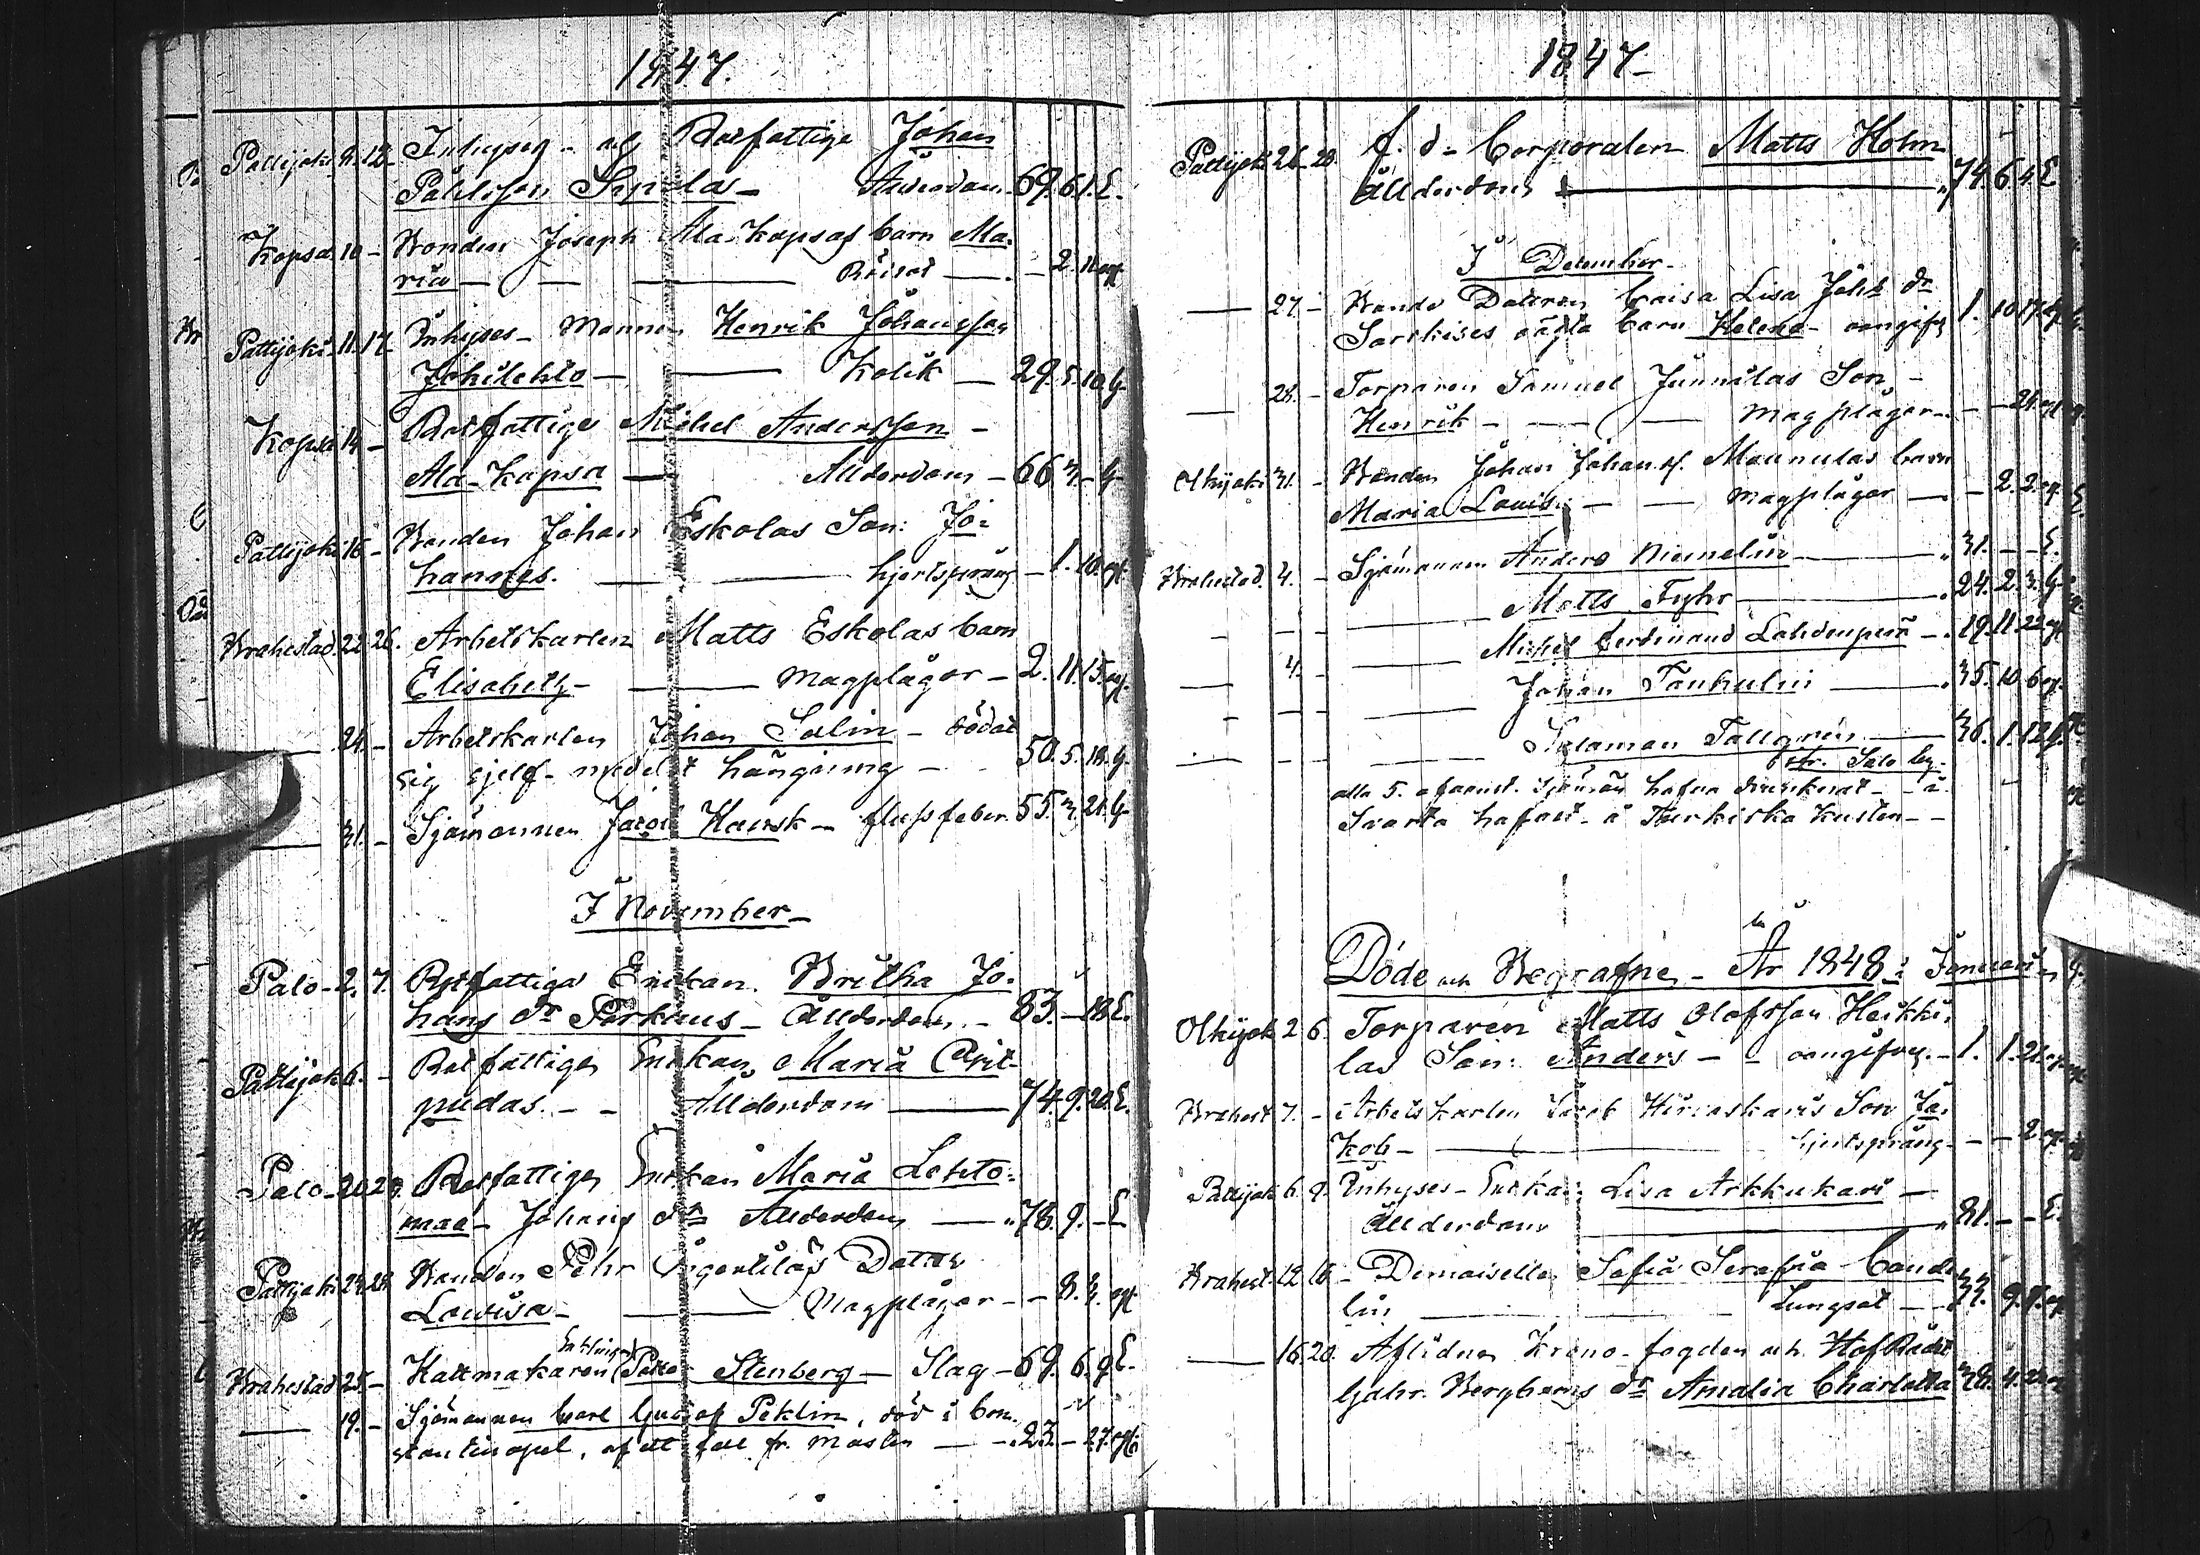 1847.
Pattijoki 9. 12. Inhyses- och Rotfattige Johan
Påhlsson Sipolas - Ålderdom - 69. 6. 1. E.
Kopsa 10 - Bonden Joseph Ala Kopsas barn Ma-
ria - 2. 11. og.
Pattijoki 11. 17. Inhyses- Mannen Henrik Johansson
Jokilehto - Kolik - 29. 5. 10. G.
Kopsa 14 - Rotfattige Michel Andersson -
Ala-Kopsa - Ålderdom - 66. 3. - G.
Pattijoki 16 - Bonden Johan Eskolas Son: Jo-
hannes. - hjertsprång - 1. 10. og.
Brahestad 22. 26. Arbetskarlen Matts Eskolas barn
Elisabeth - Magplågor - 2. 11. 15. og.
24. - Arbetskarlen Johan Salin - dödat
sig sjelf medelst hängning - 50. 5. 18. G.
31. - Sjömannen Jacob Haursk - flussfeber 55. 3. 21. G.
I November -
Palo - 2. 7. Rotfattiga Enkan Britha Jo-
hans dr Porkaus - Ålderdom - 83. - 18 E.
Pattijoki 6. - Rotfattiga Enkan Maria
pudas. - - Ålderdom - 74. 9. 20. E.
Palo - 20. 28. Rotfattiga Enkan Maria Lehto-
maa - Johans dr Ålderdom - 78. 9. - E
Pattijoki 24. 28. Bonden Pehr Dotter
Lowisa - Magplågor - - 8. 4. og.
Brahestad 25. - Hattmakaren Petter Stenberg - Slag - 69. 6. 9 E.
19. - Sjömannen Carl Gustaf Peklin, död i Con-
stantinopel, af ett fall fr. Masten - 23. - 27. og.
1847 -
Pattijoki 26. 28. f. d. Corporalen Matts Holm
Ålderdom - 74. 6. 4. E
I December -
27. - Bonde Dottren Caisa Lisa Johs dr
Sarkises oägta barn Helena - oangifv. 1. 10. 17.
28. - Torparen Samuel Junnilas Son, -
Henrik - Magplågor - - - 21. og.
Olkijoki 31. - Bonden Johan Johanss. Maunulas barn
Maria Lovisa - Magplågor - - 2. 2. og.
Brahestad. 4. - Sjömannen Anders Niemelin - 31. - - E.
Matts Fyhr - 24. 2. 3. G.
Michel Ferdinand Lahdenperä - 19. 11. 22. og.
4. - Johan Tankulin - 35. 10. 6 og.
Salamon Tallgrén - 36. 1. 12. G.
fr. Salo by.
alla 5. ofvannt. Sjömän hafva drunknat - å
Svarta hafvet å Turkiska Kusten - -
Döde och Begrafne - År 1848 i Januari
Olkijok. 2. 6. Torparen Matts Olofsson Heikki-
las Son: Anders - - oangifven. - 1. 1. 21. og.
Brahest. 7. - Arbetskarlen Jacob Hirvaskaris Son Ja-
kob - hjertsprång - - - 2. og.
Pattijok. 6. 9. Inhyses- Enkan Lisa Arkkukari -
Ålderdom - 81. - - E.
Brahest. 12. 16. - Demoiselle Sofia Serafia Cande-
lin - Lungsot - 33. 9. 8. og.
16. 20. Aflidne Krono-fogden och Hof Rådet
Gabr. Berghems dr Amalia Charlotta 28. 4.